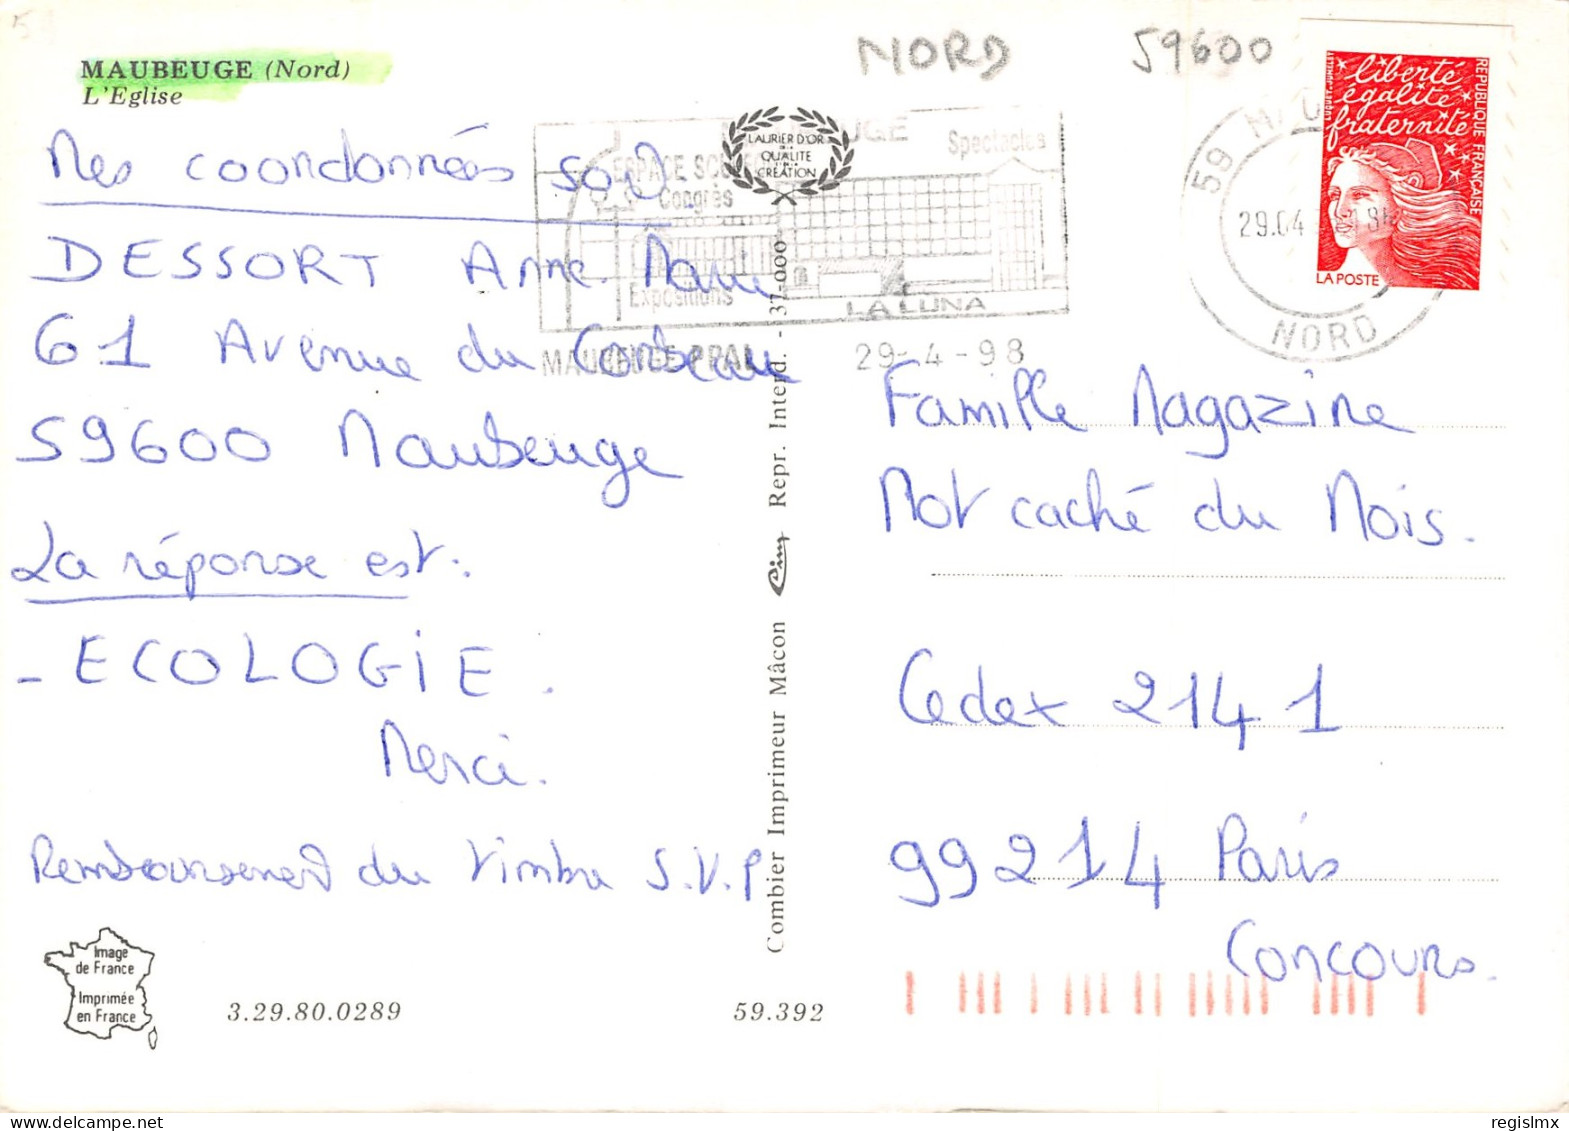 MAUBEUGE (Nord)
L'Eglise
NORD
59600
Mes coordonnées sont
DESSORT Anne Marie
61 Avenue du Corbeau
59600 Maubeuge
La réponse est:
- ECOLOGIE.
Merci.
Remboursement du timbre S.V.P
Image
de France
Imprimée
en France
3.29.80.0289
59.392
Combier Imprimeur Mâcon Cim Repr. Interd. - 37.000
LAURIER D'OR
DE LA
QUALITE
CREATION
Spectacles
Congrès
Expositions
LA LUNA
MAUBEUGE PPAL
29-4-98
59
29.04
NORD
liberté
égalité
fraternité
REPUBLIQUE FRANÇAISE
LA POSTE
Famille Magazine
Mot caché du Mois.
Cedex 2141
99214 Paris
Concours.
regislmx